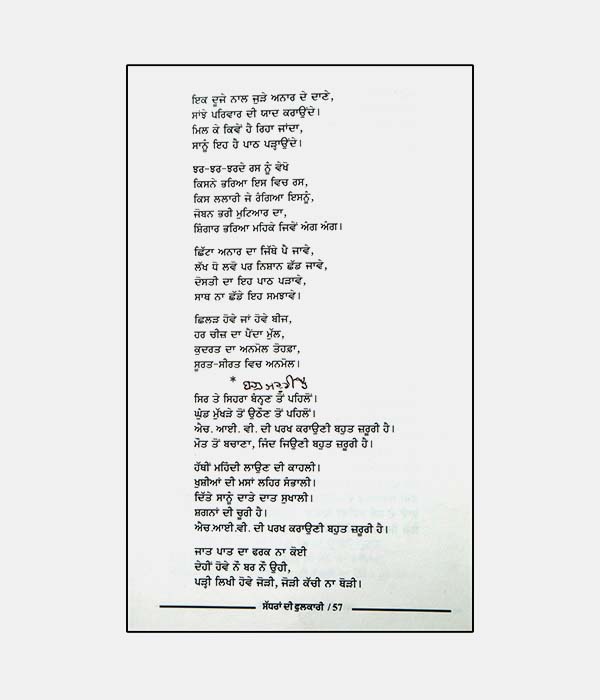 ਇਕ ਦੂਜੇ ਨਾਲ ਜੁੜੇ ਅਨਾਰ ਦੇ ਦਾਣੇ,
ਸਾਂਝੇ ਪਰਿਵਾਰ ਦੀ ਯਾਦ ਕਰਾਉਂਦੇ।
ਮਿਲ ਕੇ ਕਿਵੇਂ ਹੈ ਰਿਹਾ ਜਾਂਦਾ,
ਸਾਨੂੰ ਇਹ ਹੈ ਪਾਠ ਪੜ੍ਹਾਉਂਦੇ।
ਝਰ-ਝਰ-ਝਰਦੇ ਰਸ ਨੂੰ ਵੇਖੋ
ਕਿਸਨੇ ਭਰਿਆ ਇਸ ਵਿਚ ਰਸ,
ਕਿਸ ਲਲਾਰੀ ਜੇ ਰੰਗਿਆ ਇਸਨੂੰ,
ਜੋਬਨ ਭਰੀ ਮੁਟਿਆਰ ਦਾ,
ਸ਼ਿੰਗਾਰ ਭਰਿਆ ਮਹਿਕੇ ਜਿਵੇਂ ਅੰਗ ਅੰਗ।
ਛਿੱਟਾ ਅਨਾਰ ਦਾ ਜਿੱਥੇ ਪੈ ਜਾਵੇ,
ਲੱਖ ਧੋ ਲਵੋ ਪਰ ਨਿਸ਼ਾਨ ਛੱਡ ਜਾਵੇ,
ਦੋਸਤੀ ਦਾ ਇਹ ਪਾਠ ਪੜਾਵੇ,
ਸਾਥ ਨਾ ਛੱਡੇ ਇਹ ਸਮਝਾਵੇ।
ਛਿਲੜ ਹੋਵੇ ਜਾਂ ਹੋਵੇ ਬੀਜ,
ਹਰ ਚੀਜ਼ ਦਾ ਪੈਂਦਾ ਮੁੱਲ,
ਕੁਦਰਤ ਦਾ ਅਨਮੋਲ ਤੋਹਫ਼ਾ,
ਸੂਰਤ-ਸੀਰਤ ਵਿਚ ਅਨਮੋਲ।
*
ਸਿਰ ਤੇ ਸਿਹਰਾ ਬੰਨ੍ਹਣ ਤੋਂ ਪਹਿਲੋਂ।
ਘੁੰਡ ਮੁੱਖੜੇ ਤੋਂ ਉਠੌਣ ਤੋਂ ਪਹਿਲੋਂ।
ਐਚ. ਆਈ. ਵੀ. ਦੀ ਪਰਖ ਕਰਾਉਣੀ ਬਹੁਤ ਜ਼ਰੂਰੀ ਹੈ।
ਮੌਤ ਤੋਂ ਬਚਾਣਾ, ਜਿੰਦ ਜਿਉਣੀ ਬਹੁਤ ਜ਼ਰੂਰੀ ਹੈ।
ਹੱਥੀਂ ਮਹਿੰਦੀ ਲਾਉਣ ਦੀ ਕਾਹਲੀ।
ਖ਼ੁਸ਼ੀਆਂ ਦੀ ਮਸਾਂ ਲਹਿਰ ਸੰਭਾਲੀ।
ਦਿੱਤੇ ਸਾਨੂੰ ਦਾਤੇ ਦਾਤ ਸੁਖਾਲੀ।
ਸ਼ਗਨਾਂ ਦੀ ਚੂਰੀ ਹੈ।
ਐਚ.ਆਈ.ਵੀ. ਦੀ ਪਰਖ ਕਰਾਉਣੀ ਬਹੁਤ ਜ਼ਰੂਰੀ ਹੈ।
ਜਾਤ ਪਾਤ ਦਾ ਫਰਕ ਨਾ ਕੋਈ
ਦੇਹੀਂ ਹੋਵੇ ਨੌ ਬਰ ਨੌ ਉਹੀ,
ਪੜ੍ਹੀ ਲਿਖੀ ਹੋਵੇ ਜੋੜੀ, ਜੋੜੀ ਕੱਚੀ ਨਾ ਥੋੜੀ।
ਸੱਧਰਾਂ ਦੀ ਫੁਲਕਾਰੀ / 57